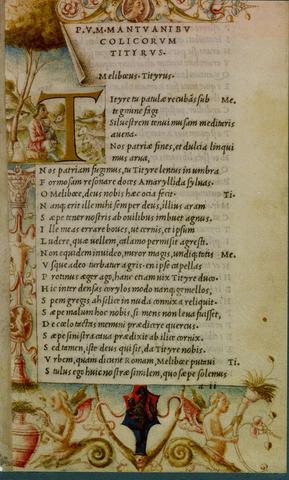 P. V. M. MANTVANI BV
COLICORVM
TITYRVS.
Melibœus. Tityrus.
Tityre tu patulæ recubãs sub Me.
tegmine fagi
Siluestrem tenui musam meditaris
auena.
Nos patriæ fines, et dulcia linqui
mus arua,
N os patriam fugimus, tu Tityre lentus in umbra
F ormosam resonare doces Amaryllida syluas.
O Melibœe, deus nobis hæc ocia fecit. Ti.
N anq; erit ille mihi semper deus, illius aram
S æpe tener nostris ab ouilibus imbuet agnus.
I lle meas errare boues, ut cernis, et ipsum
L udere, quæ uellem, calamo permisit agresti.
N on equidem inuideo, miror magis, undiq; totis Me.
V sque adeo turbatur agris. en ipse capellas
P rotinus æger ago, hanc etiam uix Tityre duco.
H ic inter densas corylos modo nanq; gemellos,
S pem gregis ah silice in nuda connixa reliquit.
S æpe malum hoc nobis, si mens non leua fuisset,
D e cœlo tactas memini prædicere quercus.
S æpe sinistra caua prædixit ab ilice cornix.
S ed tamen, iste deus qui sit, da Tityre nobis.
V rbem, quam dicunt Romam, Melibœe putaui Ti.
S tultus ego huic nostræ similem, quo sæpe solemus
a ii